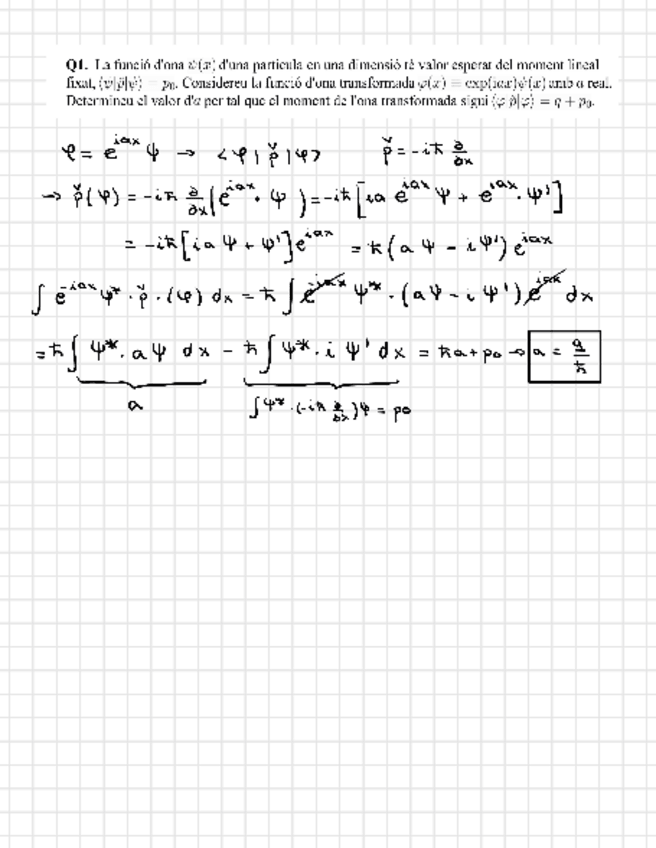 Q1. La funció d'ona ψ(x) d'una partícula en una dimensió té valor esperat del moment lineal
fixat, ⟨ψ|p̂|ψ⟩ = p₀. Considereu la funció d'ona transformada φ(x) = exp(iax)ψ(x) amb a real.
Determineu el valor d'a per tal que el moment de l'ona transformada sigui ⟨φ|p̂|φ⟩ = q + p₀.
φ = e^{iax} ψ → <φ| p̌ |φ> p̌ = -iħ ∂/∂x
→ p̌(φ) = -iħ ∂/∂x (e^{iax} · ψ) = -iħ [ia e^{iax} ψ + e^{iax} · ψ']
= -iħ [ia ψ + ψ'] e^{iax} = ħ (a ψ - i ψ') e^{iax}
∫ e^{-iax} ψ* · p̌ · (φ) dx = ħ ∫ e^{-iax} ψ* · (aψ - i ψ') e^{iax} dx
= ħ ∫ ψ* · a ψ dx - ħ ∫ ψ* · i ψ' dx = ħa + p₀ → a = q/ħ
a ∫ψ* · (-iħ ∂/∂x) ψ = p₀